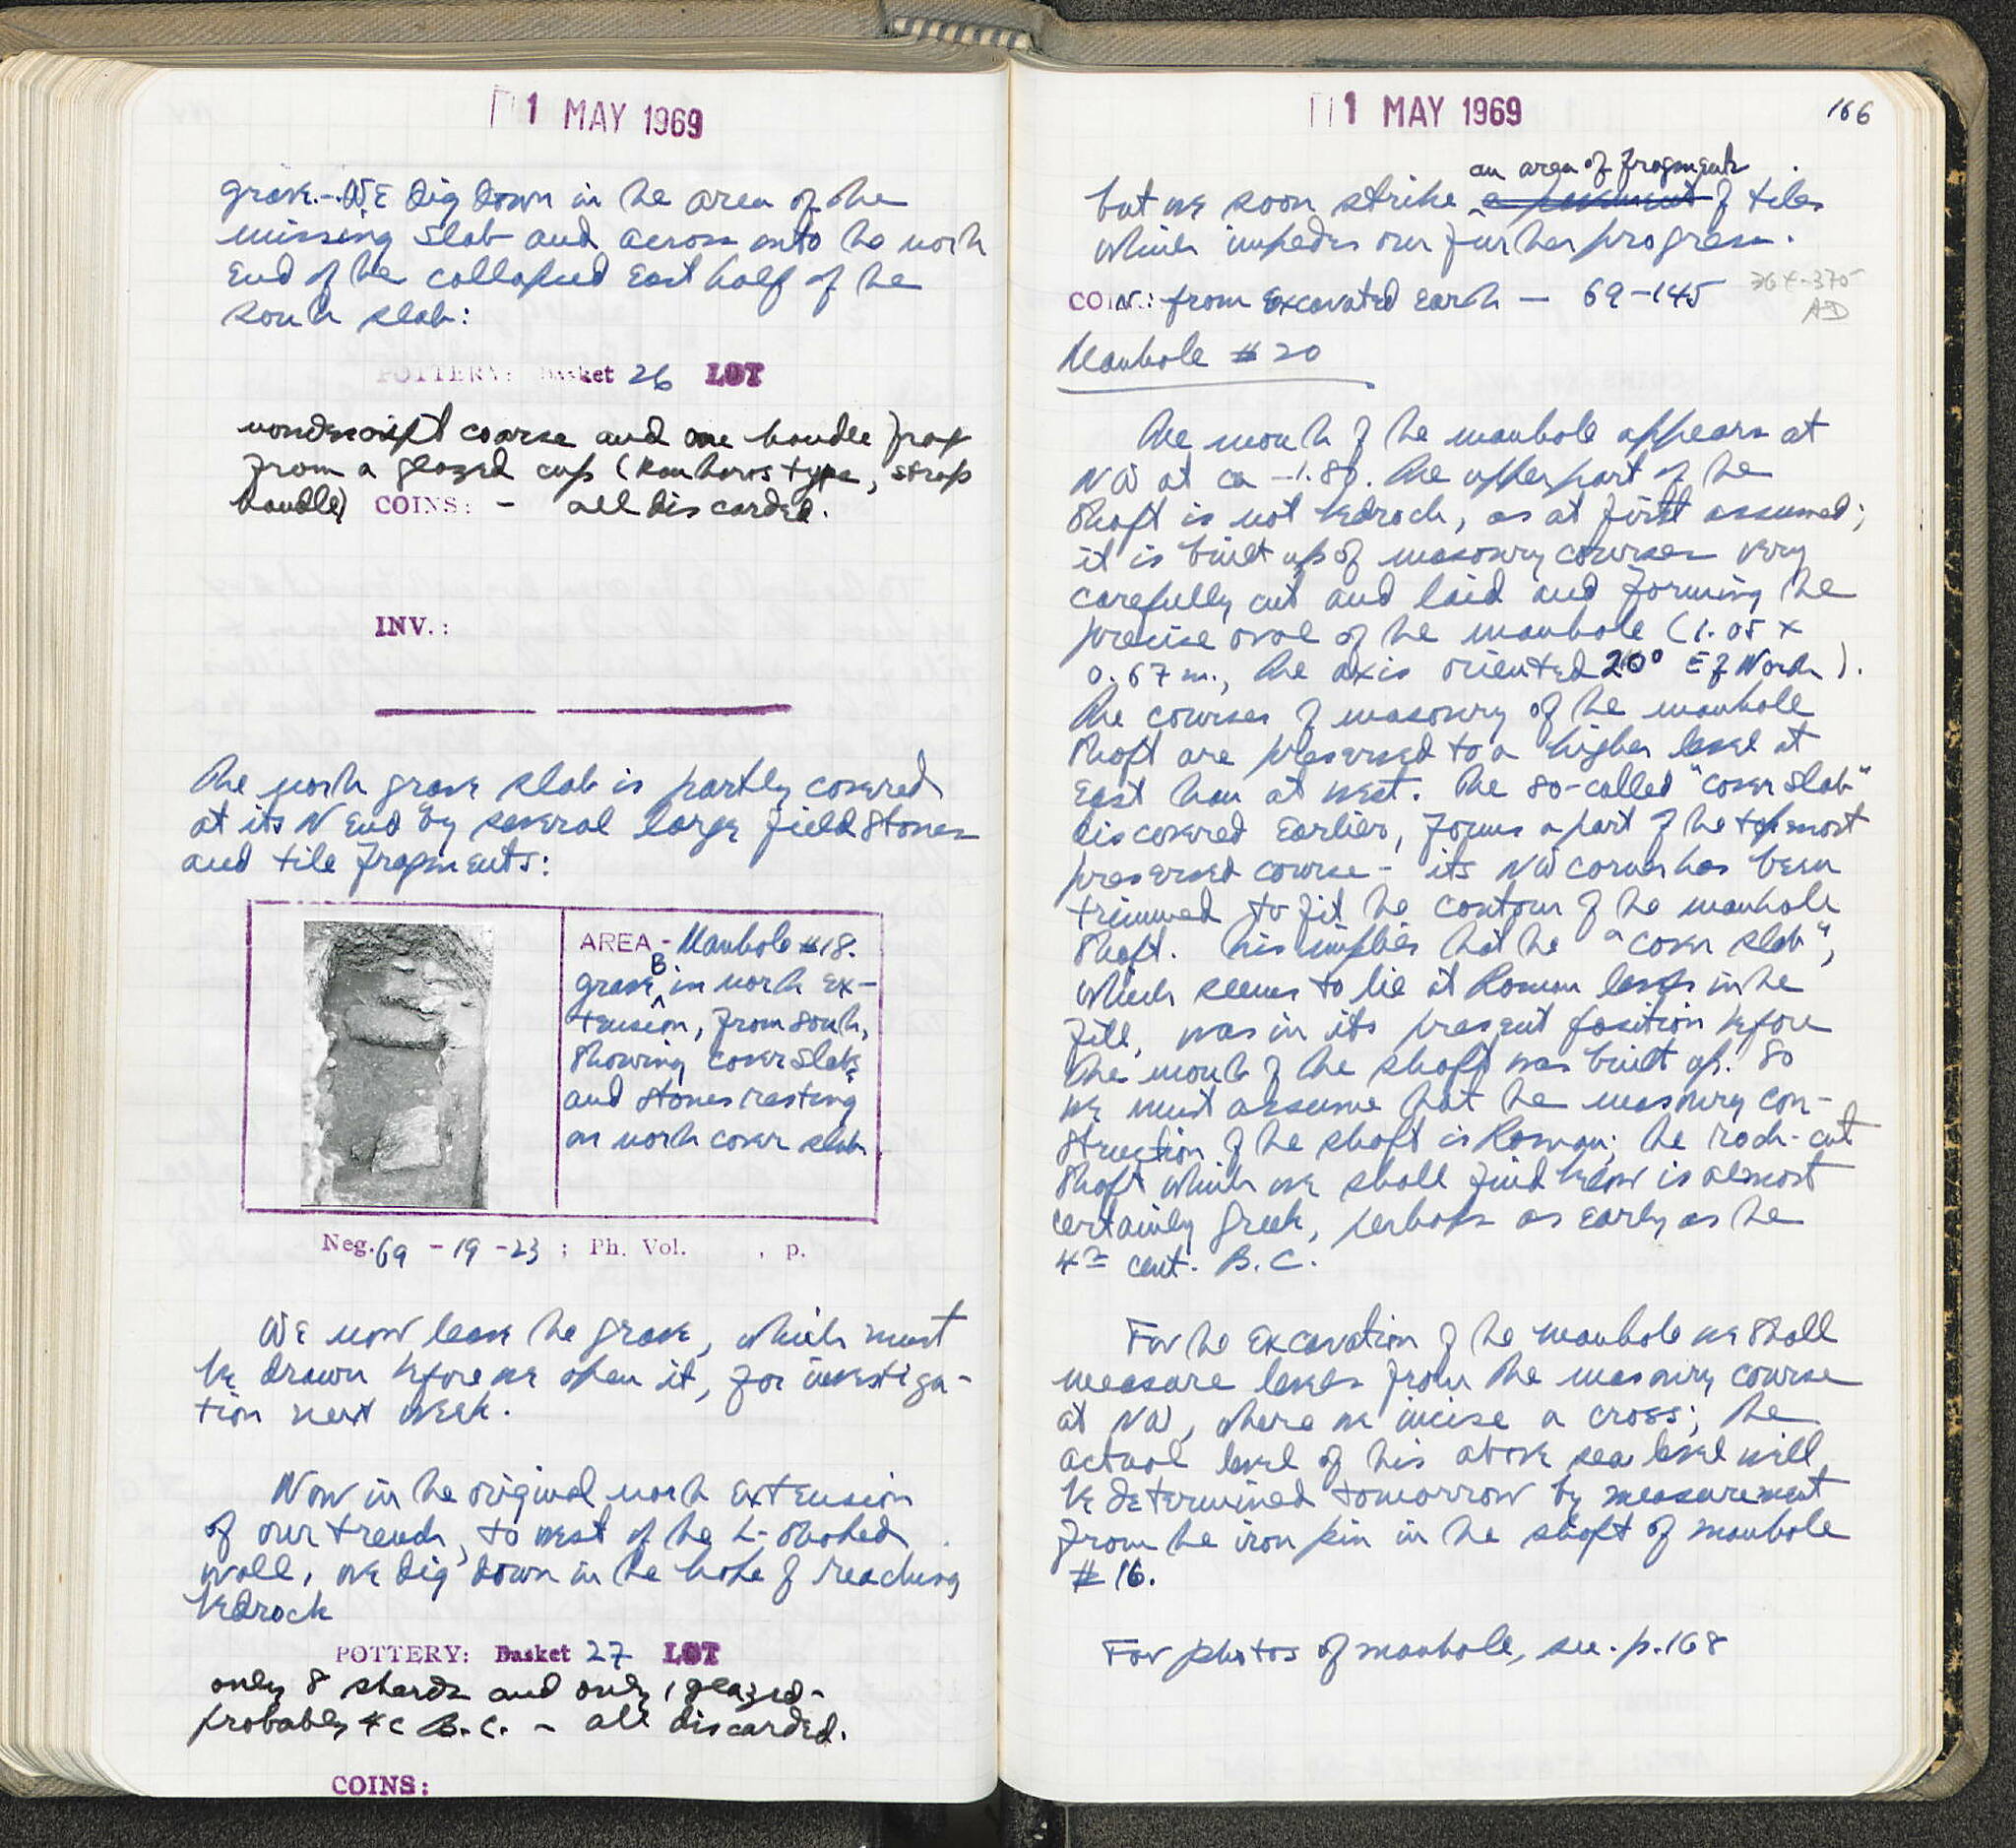 1 MAY 1969
grave. - We dig down in the area of the
missing slab and across onto the north
end of the collapsed east half of the
south slab:
POTTERY: Basket 26 LOT
nondescript coarse and one handle frag
from a glazed cup (Kantharos type, strap
handle) COINS: - all discarded.
INV.:
The north grave slab is partly covered
at its N end by several large field stones
and tile fragments:
AREA - Manhole #18.
grave B in north ex-
tension, from south,
showing cover slabs
and stones resting
on north cover slab
Neg. 69 - 19 - 23 ; Ph. Vol. , p.
We now leave the grave, which must
be drawn before we open it, for investiga-
tion next week.
Now in the original north extension
of our trench, to west of the L-shaped
wall, we dig down in the hope of reaching
bedrock
POTTERY: Basket 27 LOT
only 8 sherds and only 1 glazed -
probably 4c B.C. - all discarded.
COINS:
1 MAY 1969
166
an area of fragments
but we soon strike a pavement of tiles
which impedes our further progress.
COIN: from excavated earth - 69-145
364-375
AD
Manhole #20
The mouth of the manhole appears at
NW at ca -1.80. The upper part of the
shaft is not bedrock, as at first assumed;
it is built up of masonry courses very
carefully cut and laid and forming the
precise oval of the manhole (1.05 x
0.67 m., the axis oriented 20° E of North).
The courses of masonry of the manhole
shaft are preserved to a higher level at
east than at west. The so-called "cover slab"
discovered earlier, forms a part of the topmost
preserved course - its NW corner has been
trimmed to fit the contour of the manhole
shaft. This implies that the "cover slab",
which seems to lie at Roman levels in the
fill, was in its present position before
the mouth of the shaft was built up. So
we must assume that the masonry con-
struction of the shaft is Roman; the rock-cut
shaft which we shall find below is almost
certainly Greek, perhaps as early as the
4th cent. B.C.
For the excavation of the manhole we shall
measure levels from the masonry course
at NW, where we incise a cross; the
actual level of this above sea level will
be determined tomorrow by measurement
from the iron pin in the shaft of manhole
#16.
For photos of manhole, see p. 168